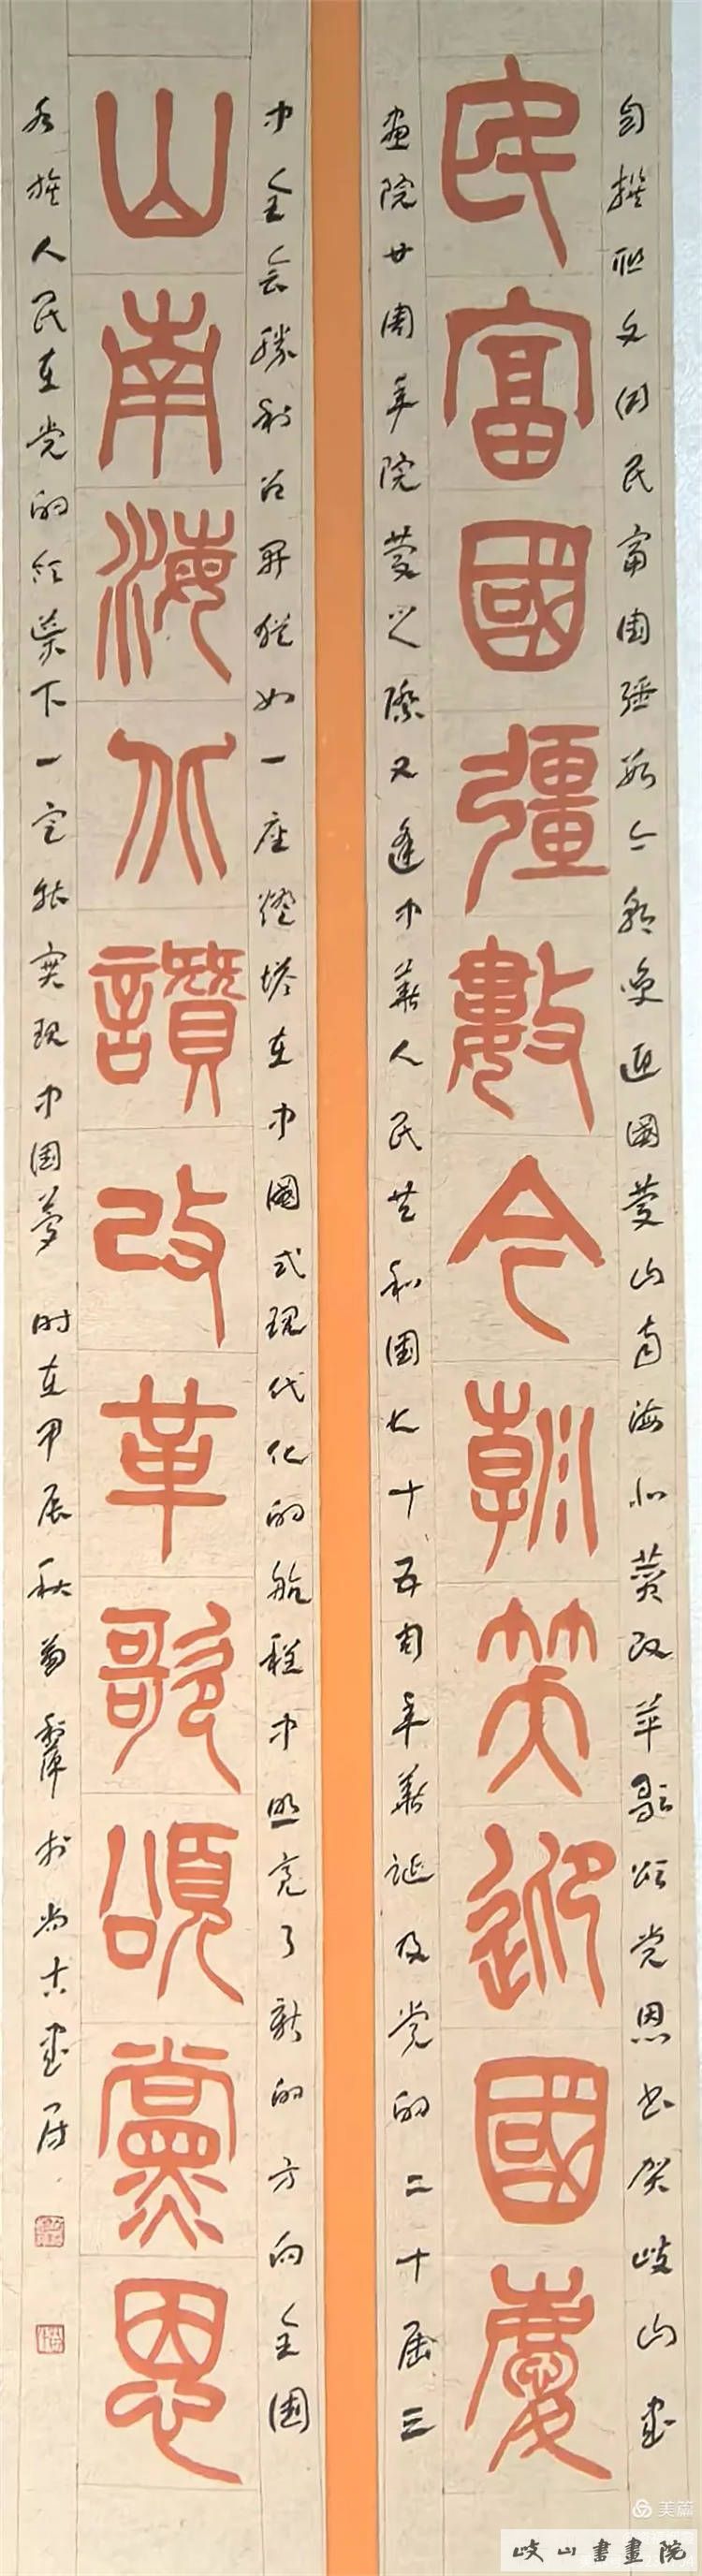 民富國彊數今朝笑迎國慶
山南海北讚改革歌頌黨恩
自撰联文曰民富国强数今朝笑迎國慶山南海北赞改革歌颂党恩书贺岐山書
画院廿周年院慶之際又逢中華人民共和国七十五周年華诞及党的二十届三
中全会勝利召开犹如一座燈塔在中國式现代化的航程中照亮了新的方向全国
各族人民在党的领导下一定能实现中国夢 时在甲辰秋菊 於尚古書居
美篇
岐山書畫院